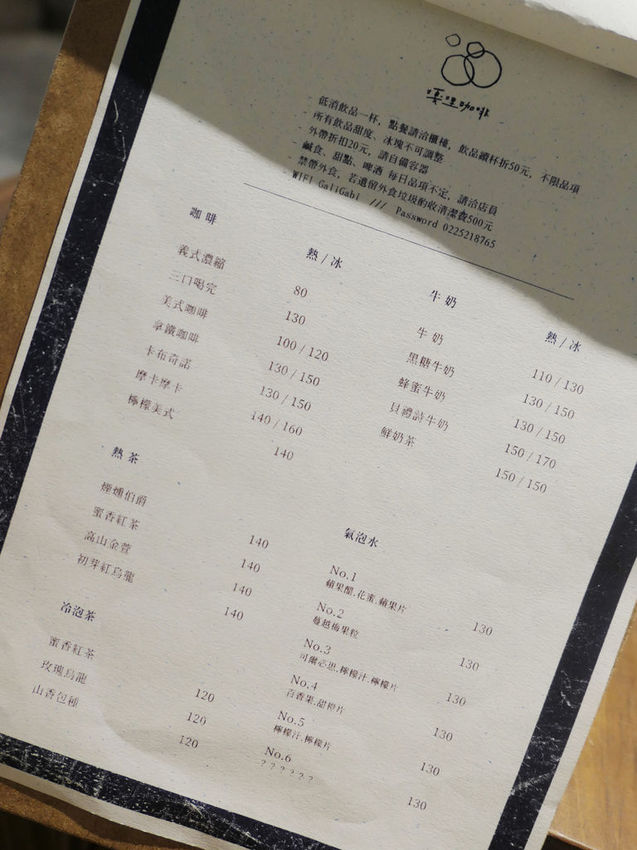 嘎哩咖啡
低消飲品一杯，點餐請洽櫃檯，飲品續杯折50元，不限品項
· 所有飲品甜度、冰塊不可調整
外帶折扣20元，請自備容器
· 鹹食、甜點、啤酒 每日品項不定，請洽店員
禁帶外食，若遺留外食垃圾酌收清潔費500元
· WIFI GaliGabi /// Password 0225218765
咖啡 熱/冰
義式濃縮 80
三口喝完 130
美式咖啡 100/120
拿鐵咖啡 130/150
卡布奇諾 130/150
摩卡摩卡 140/160
檸檬美式 140
牛奶 熱/冰
牛奶 110/130
黑糖牛奶 130/150
蜂蜜牛奶 130/150
貝禮詩牛奶 150/170
鮮奶茶 150/150
熱茶
煙燻伯爵 140
蜜香紅茶 140
高山金萱 140
初芽紅烏龍 140
冷泡茶
蜜香紅茶 120
玫瑰烏龍 120
山香包種 120
氣泡水
No.1 130
蘋果醋.花蜜.蘋果片
No.2 130
蔓越梅果粒
No.3 130
可爾必思.檸檬汁.檸檬片
No.4 130
百香果.甜橙片
No.5 130
檸檬汁.檸檬片
No.6 130
？？？？？？